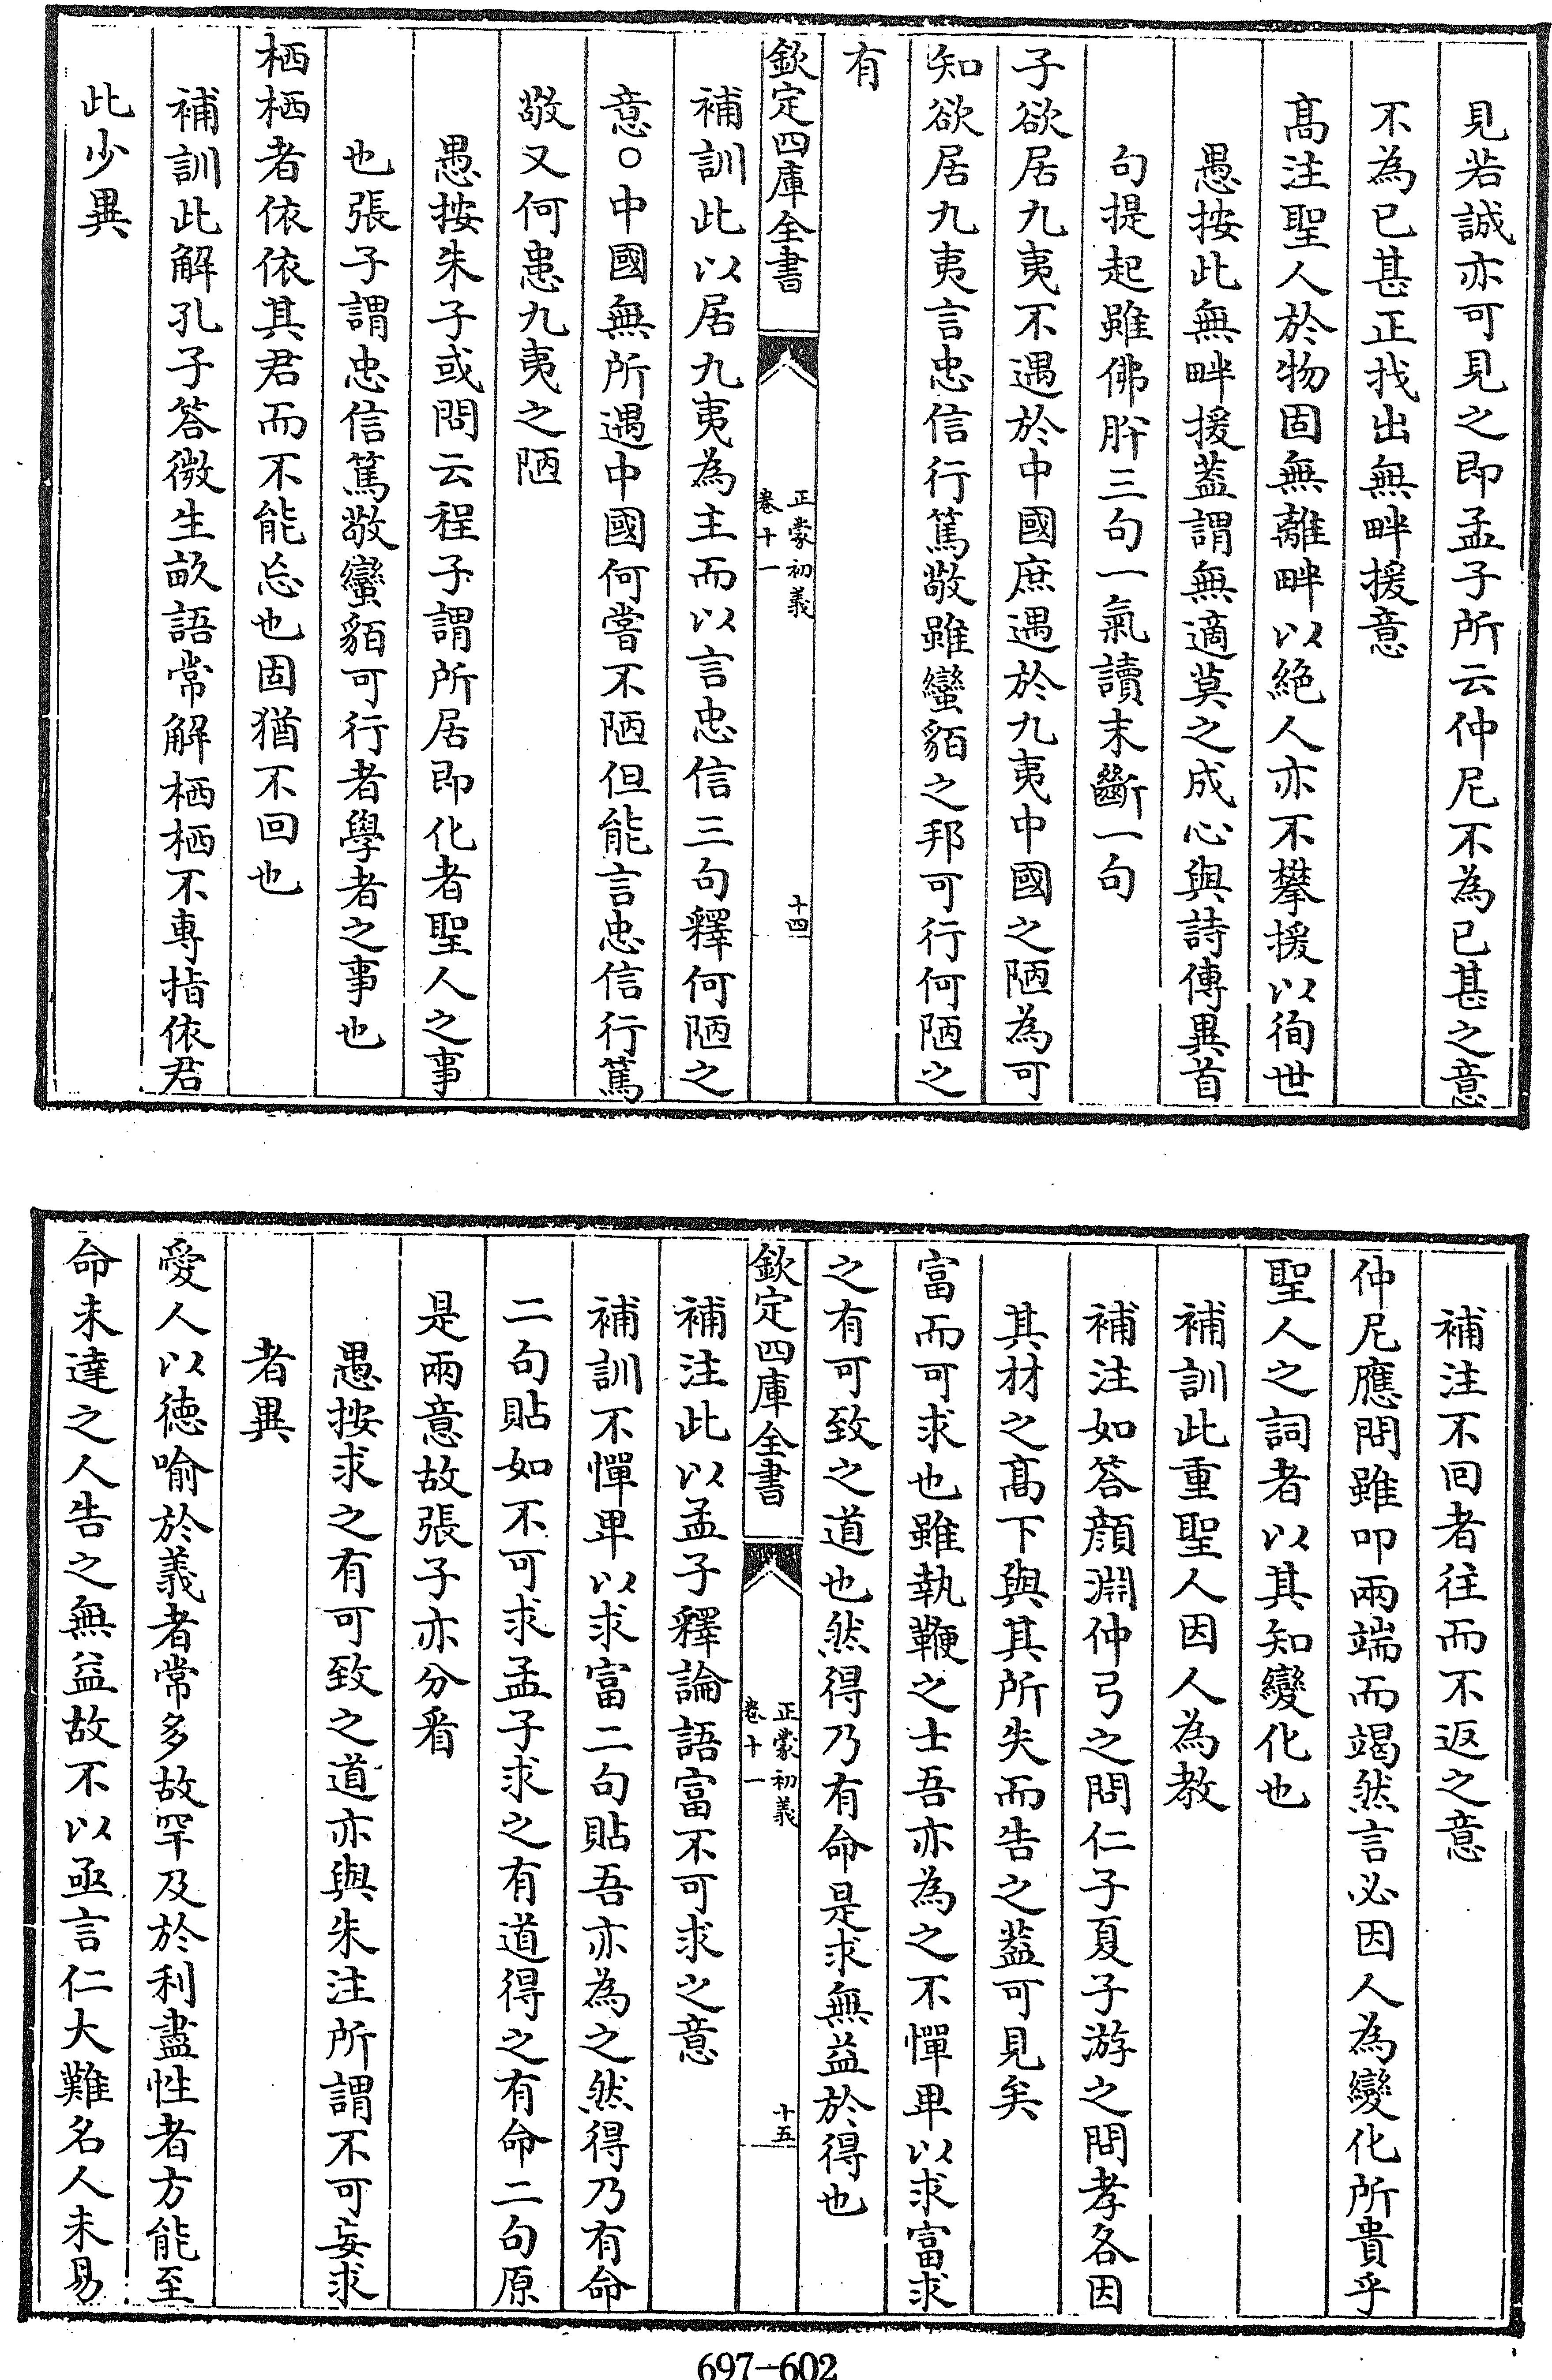 見若誠亦可見之即孟子所云仲尼不為已甚之意
不為已甚正找出無畔援意
髙注聖人於物固無離畔以絶人亦不攀援以徇世
愚按此無畔援葢謂無適莫之成心與詩傳異首
句提起雖佛肸三句一氣讀末斷一句
子欲居九夷不遇於中國庶遇於九夷中國之陋為可
知欲居九夷言忠信行篤敬雖蠻貊之邦可行何陋之
有
欽定四庫全書
正蒙初義
卷十一
十四
補訓此以居九夷為主而以言忠信三句釋何陋之
意○中國無所遇中國何嘗不陋但能言忠信行篤
敬又何患九夷之陋
愚按朱子或問云程子謂所居即化者聖人之事
也張子謂忠信篤敬蠻貊可行者學者之事也
栖栖者依依其君而不能忘也固猶不回也
補訓此解孔子答微生畝語常解栖栖不専指依君
此少異
補注不回者往而不返之意
仲尼應問雖叩兩端而竭然言必因人為變化所貴乎
聖人之詞者以其知變化也
補訓此重聖人因人為教
補注如答顔淵仲弓之問仁子夏子游之問孝各因
其材之髙下與其所失而告之葢可見矣
富而可求也雖執鞭之士吾亦為之不憚卑以求富求
之有可致之道也然得乃有命是求無益於得也
欽定四庫全書
正蒙初義
卷十一
十五
補注此以孟子釋論語富不可求之意
補訓不憚卑以求富二句貼吾亦為之然得乃有命
二句貼如不可求孟子求之有道得之有命二句原
是兩意故張子亦分看
愚按求之有可致之道亦與朱注所謂不可妄求
者異
愛人以徳喻於義者常多故罕及於利盡性者方能至
命未達之人告之無益故不以亟言仁大難名人未易
697-602